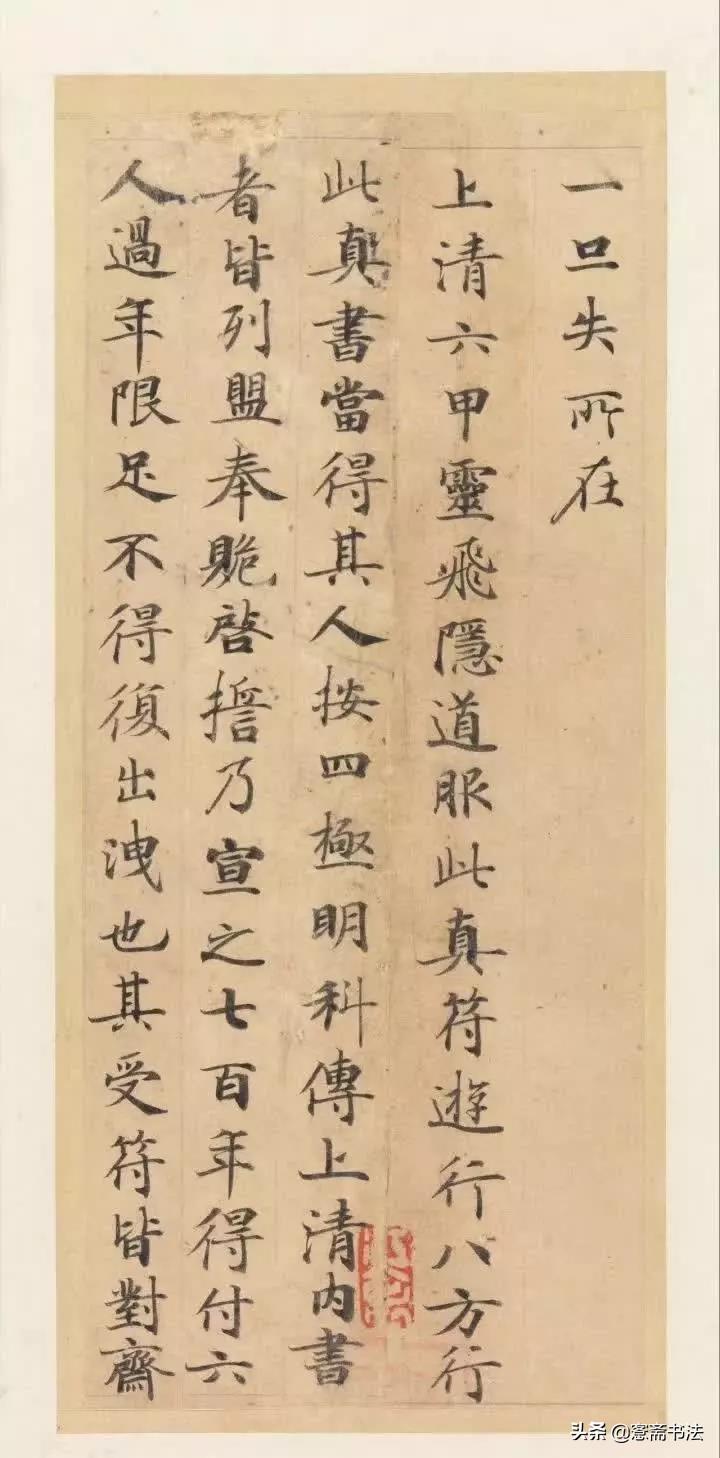 一旦失所在
上清六甲靈飛隱道服此真符遊行八方行
此真書當得其人按四極明科傳上清內書
者皆列盟奉贶啓擔乃宣之七百年得付六
人過年限足不得復出洩也其受符皆對齋
头条@寋斋书法